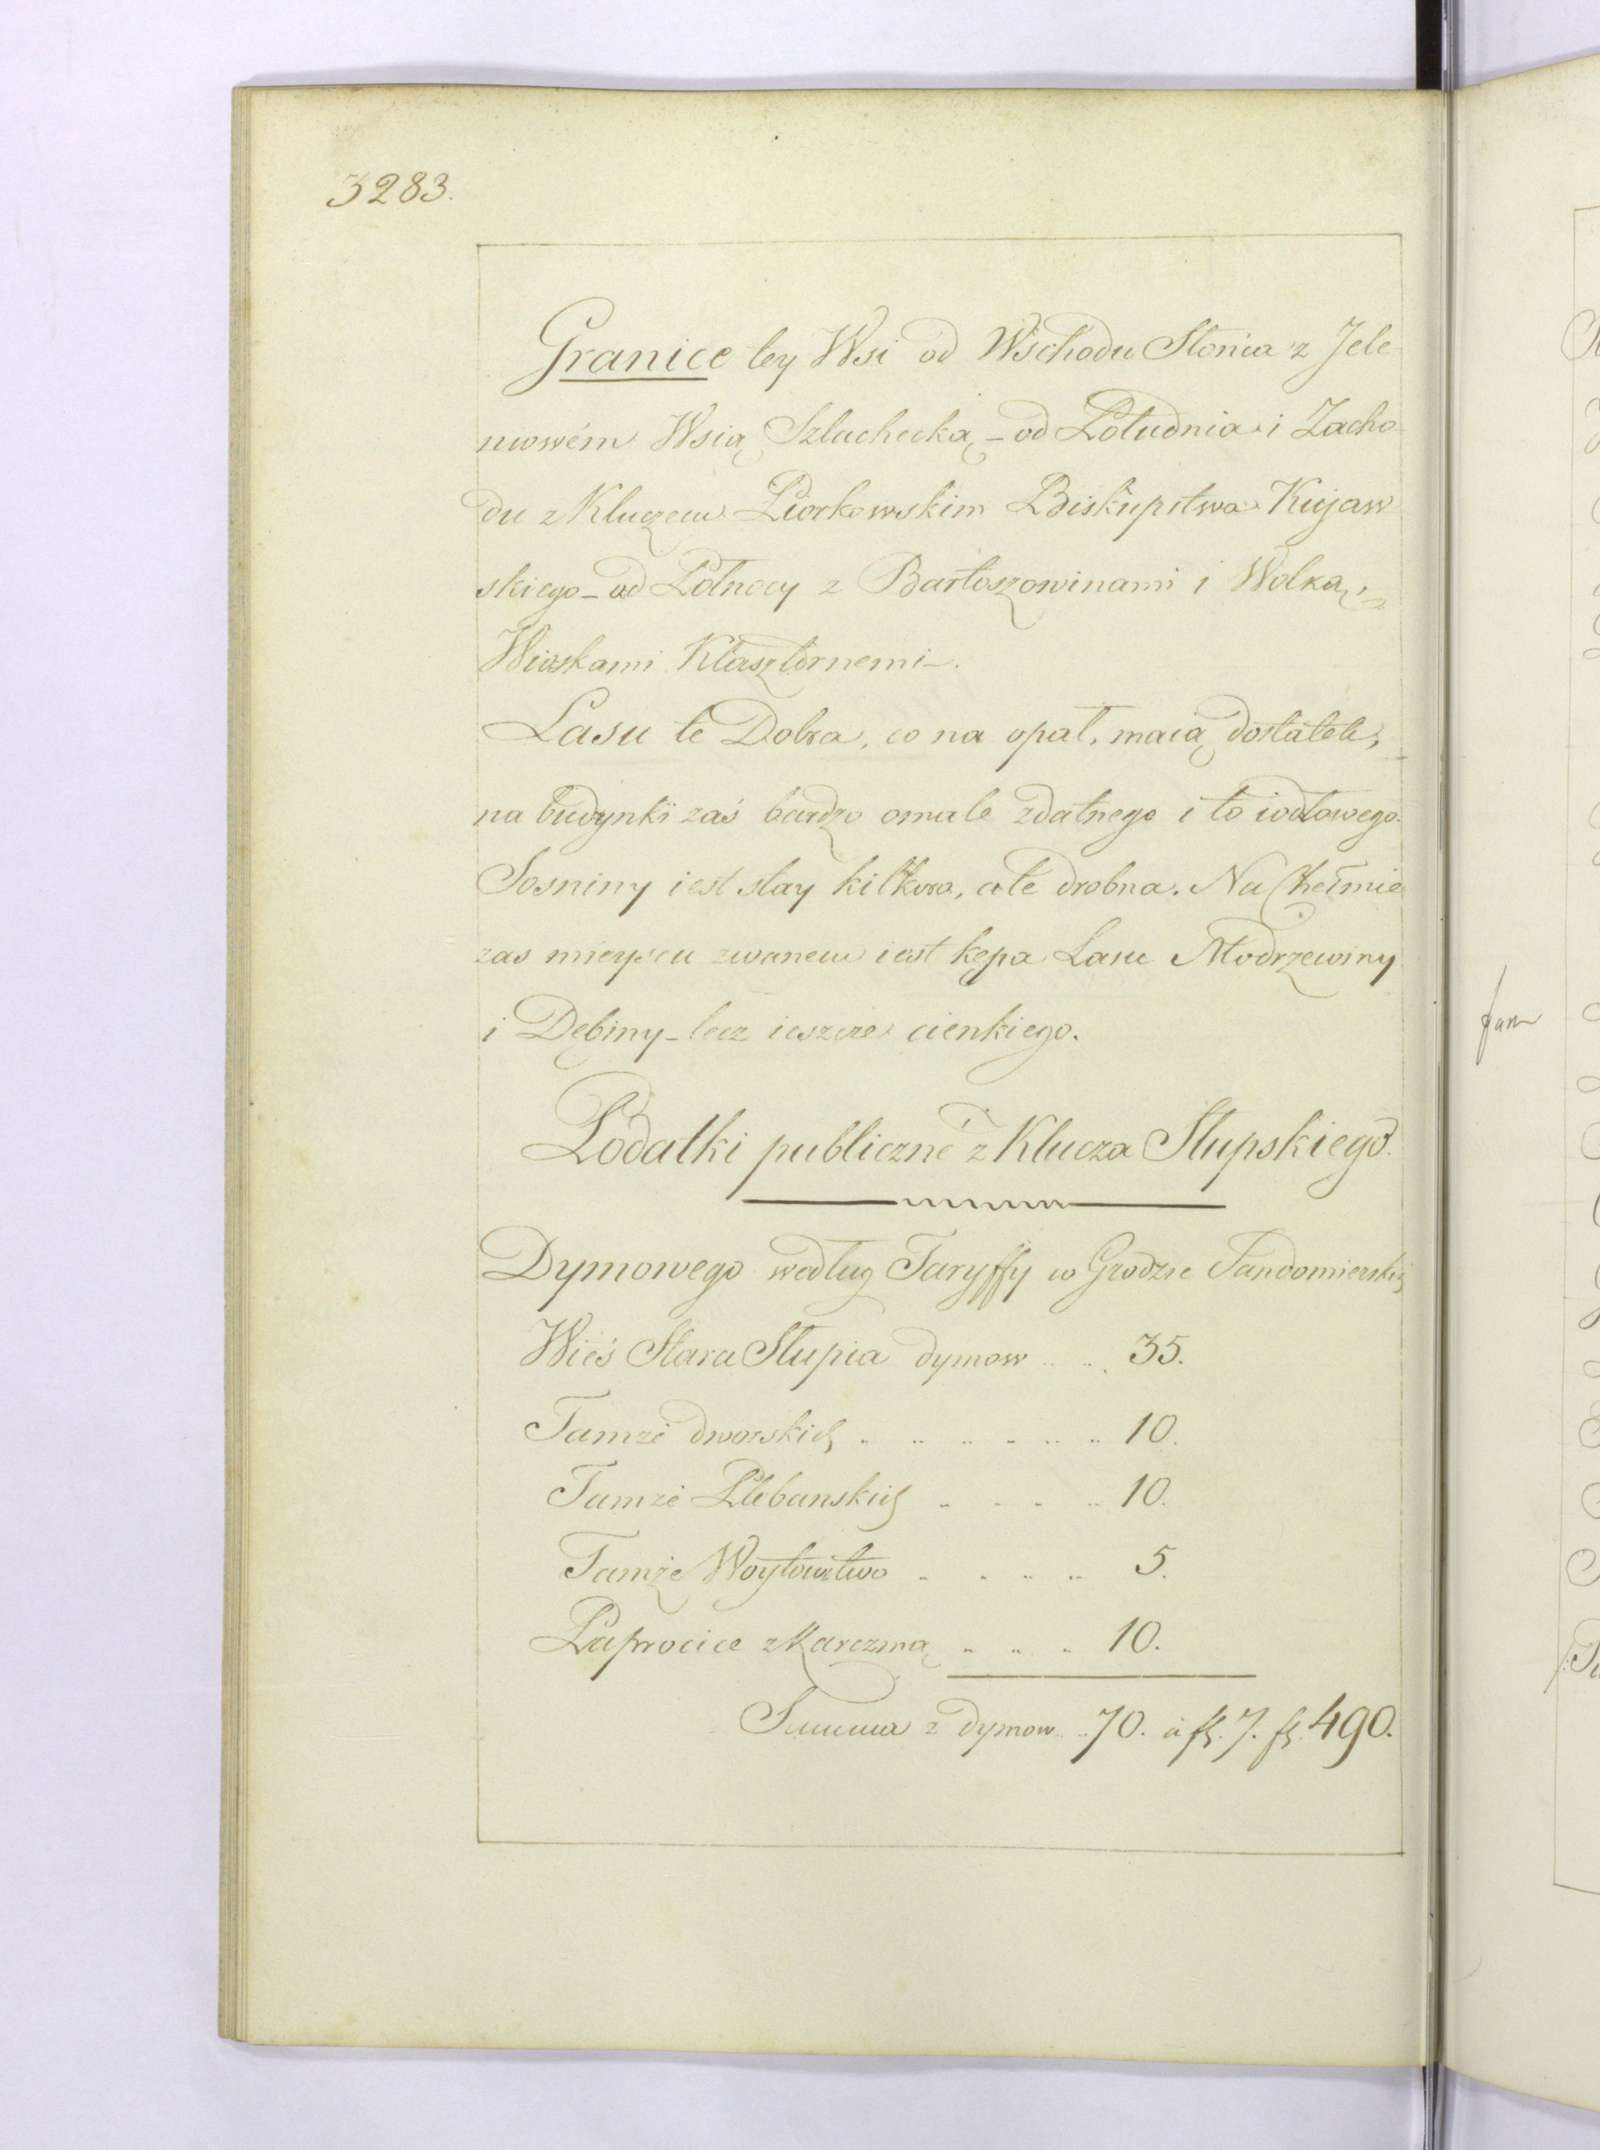 3283.
Granice tey Wsi od Wschodu Słońca z Jele-
niowém Wsią Szlachecką – od Południa i Zacho-
du z Kluczem Piorkowskim Biskupstwa Kujaw
skiego – od Połnocy z Bartoszowinami i Wolką,
Wioskami Klasztornemi –.
Lasu te Dobra, co na opał, maią dostatek,
na budynki zaś bardzo omale zdatnego i to iodłowego.
Sosniny iest stay kilkoro, ale drobna. Na Chełmie
zas mieyscu zwanem iest kępa Lasu Modrzewiny
i Dębiny – lecz ieszcze cienkiego.
Podatki publiczné z Klucza Słupskiego.
Dymowego według Taryffy w Grodzie Sandomierskij
Wieś Stara Słupia dymow .. .. 35.
Tamże dworskich .. .. .. .. .. .. 10.
Tamże Plebanskich .. .. .. .. 10.
Tamże Woytowstwo .. .. .. .. 5.
Paprocice z Karczmą .. .. .. 10.
Summa z dymow .. 70. à fl. 7. fl. 490.